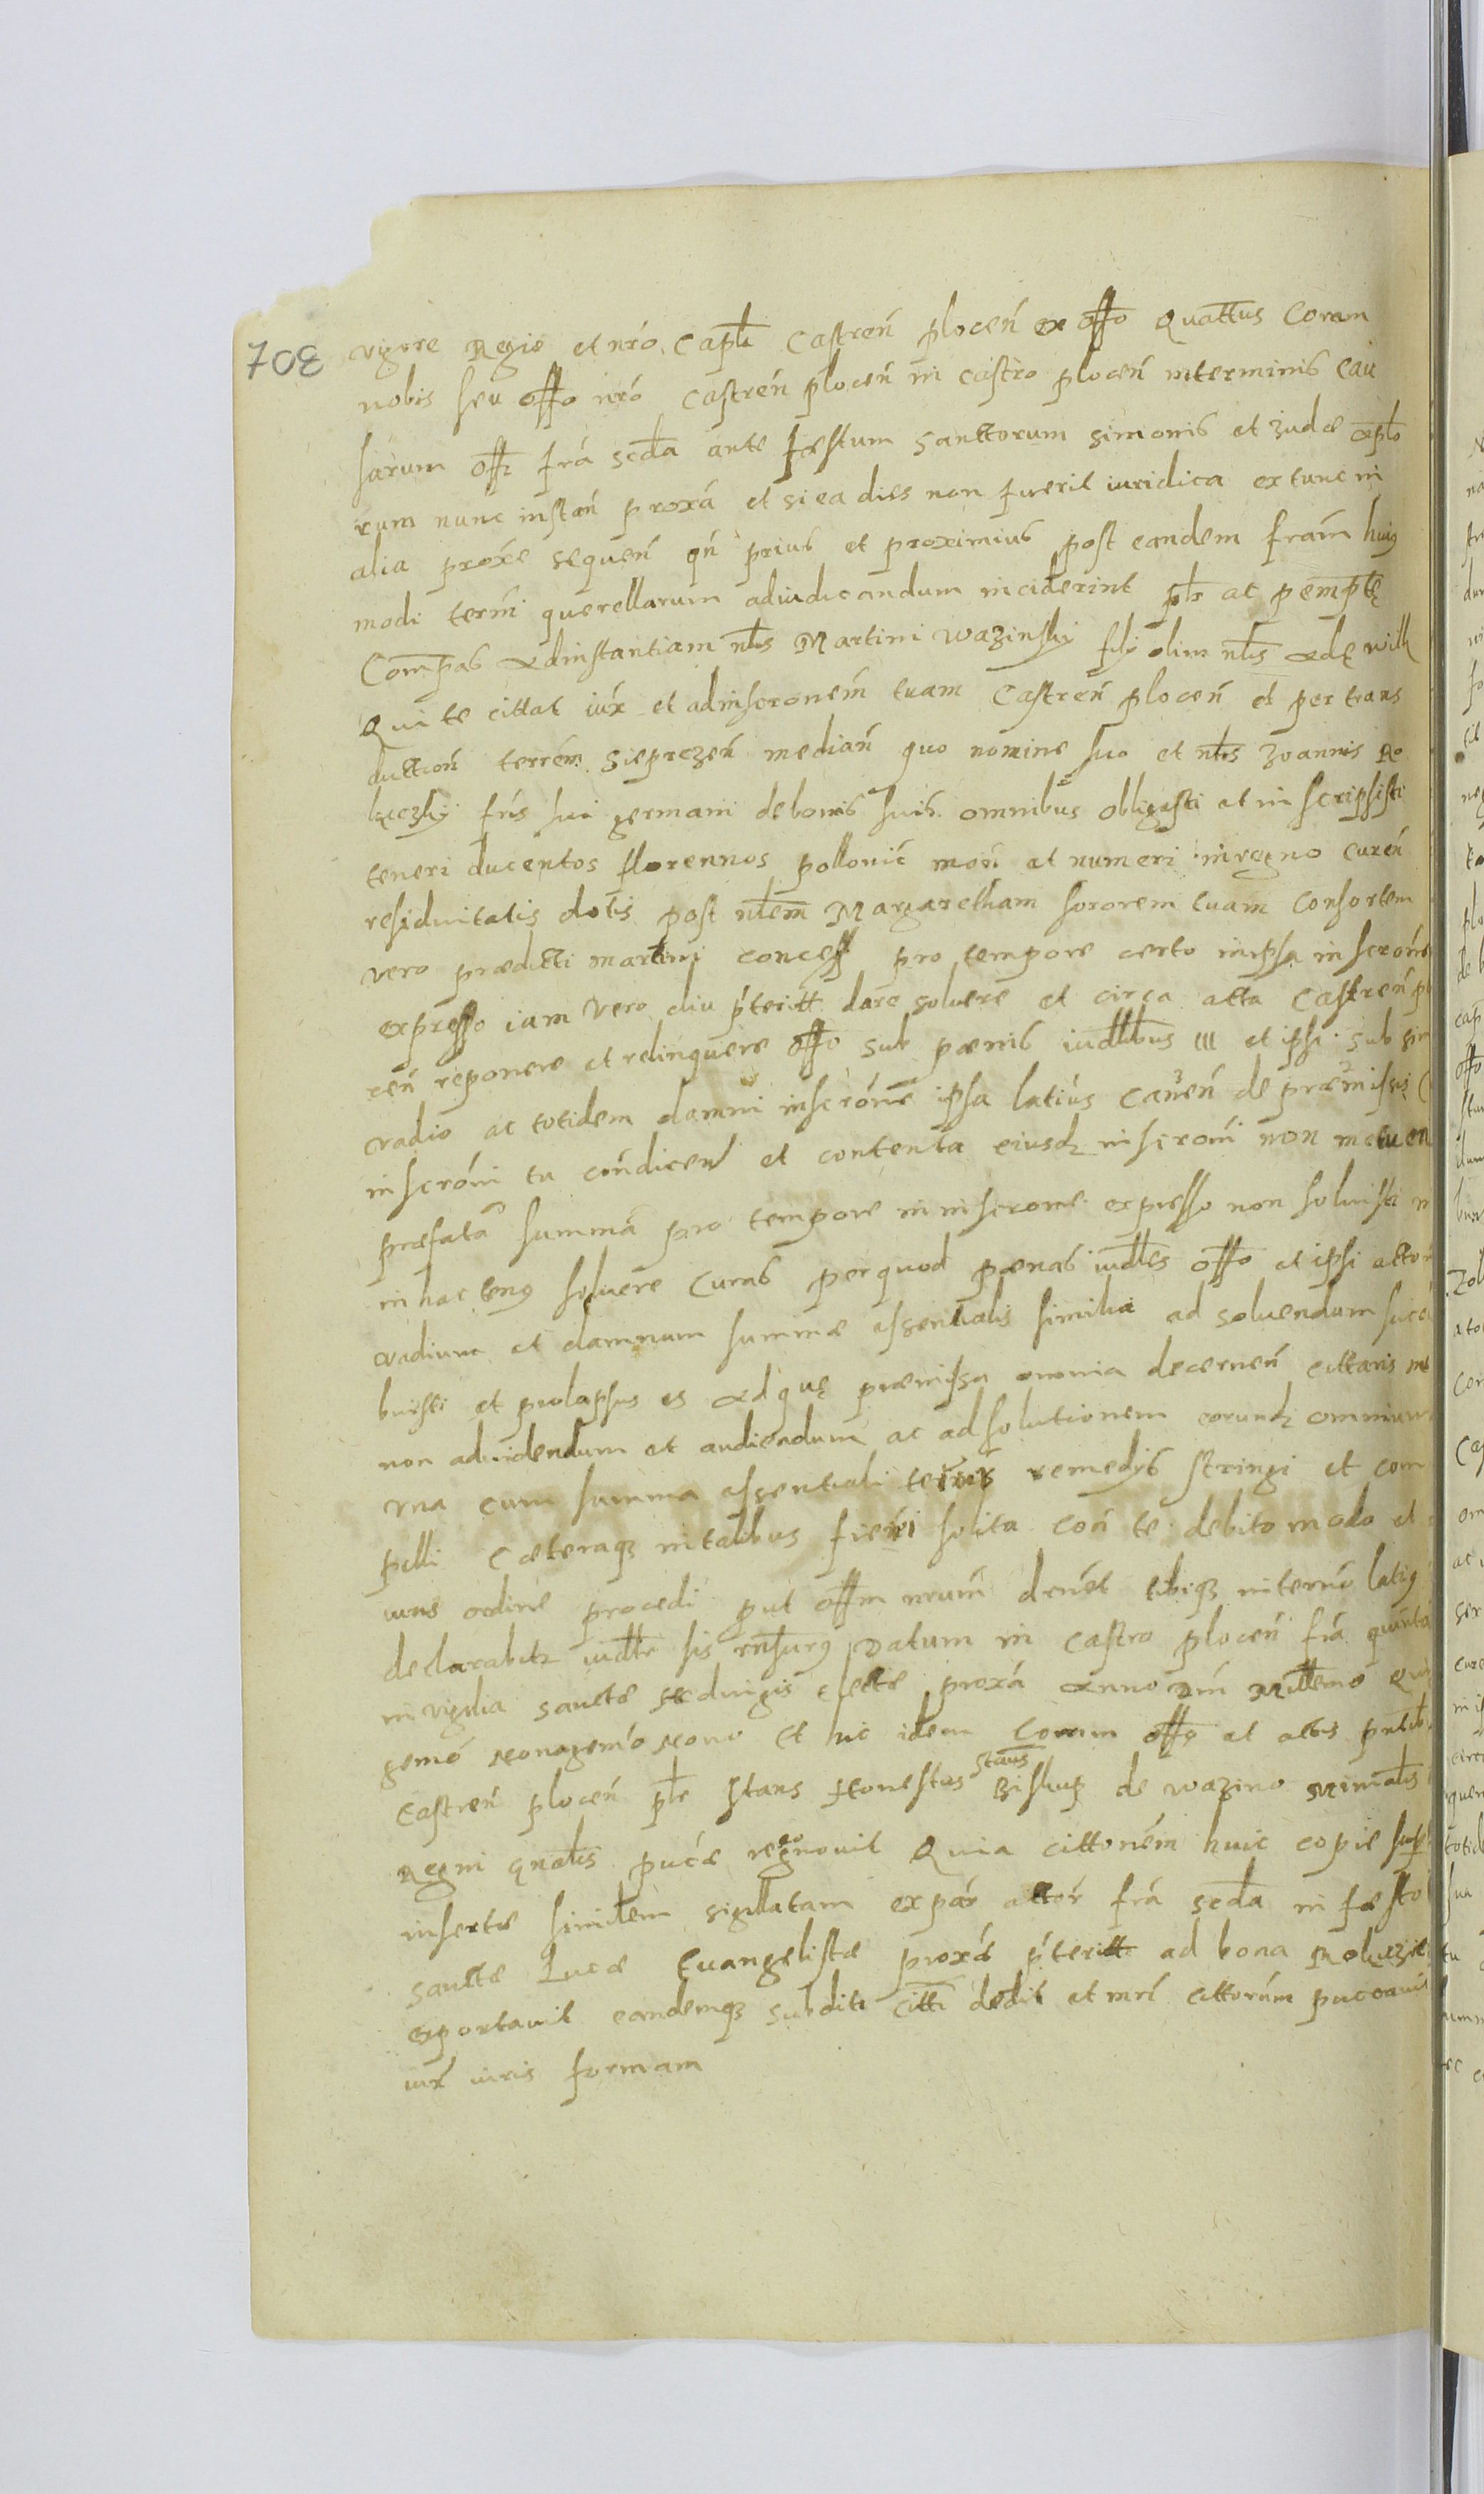 708
vigore Regio et nro Capli Castren plocen ex offo Quattus Coram
nobis seu offo nro Castren plocen in castro plocen in terminis Cau
sarum offi fra scda ante fæstum Sanctorum Simonis et Judæ aplo
rum nunc instan proxa et si ea dies non fuerit iuridica ex tunc in
alia proxe sequen qn prius et proximius post eandem fram huiq
modi termi querellarum adiudicandum inciderint plr ac pempte
Compas Ad instantiam nlis Martini Wazinskÿ filÿ olim nlis Adę
Qui te cittat iux et ad inscronem tuam Castren plocen et per trans
duction terrem Sieprczen median quo nomine suo et nlis Joannis Ro
fris sui germani de bonis suis omnibus obligasti et inscripsisti
teneri ducentos florennos pollonic mon et numeri in regno curen
residuitatis dotis post nlem Margaretham sororem tuam Consortem
vero prædicti Martini concess pro tempore certo in ipsa inscrone
expresso iam vero diu pteritt dare soluere et circa acta Castren
cen reponere et relinquere offo sub pænis iudlibus III et ipsi sub
vadio ac totidem damni inscrone ipsa latius Cauen de præmissis
inscroni tu condicen et contenta eiusdq inscroni non metuen
præfata summa pro tempore in inscrone expresso non soluisti
in hactenq soluere Curas per quod pænas iudles offo et ipsi actor
vadium et damnum summæ essentialis similia ad soluendum succu
buisti et prolapsus es Ad quę præmissa omnia decernen cittaris
non ad uidendum et audiendum ac ad solutionem eorundq omnium
vna cum summa essentiali remedÿs stringi et com
pelli Cæteraqz in talibus fieri solita con te debito modo et
iuris ordine procedi put offm nrum dcnet tibiqz in termo latiq
declarabitr iudlr sis rnsurq Datum in Castro plocen fra quinta
in vigilia Sanctæ Hedvigis Electæ proxa Anno Dni Millemo Quin
gemo Nonagemo Nono Et hic idem Coram offo et actis pntib
Castren plocen plr Stans Honestus Stans Ziskuz de Wazino Minralis
Regni gnalis pucæ recognouit Quia cittonem huic copie sup
insertæ similem sigillatam ex par actor fra scda in fæsto
Sancte Lucæ Euangelistæ proxæ pteritt ad bona
exportauit eandemqz subditi citti dedit et mri cittorum pucauit
iux iuris formam